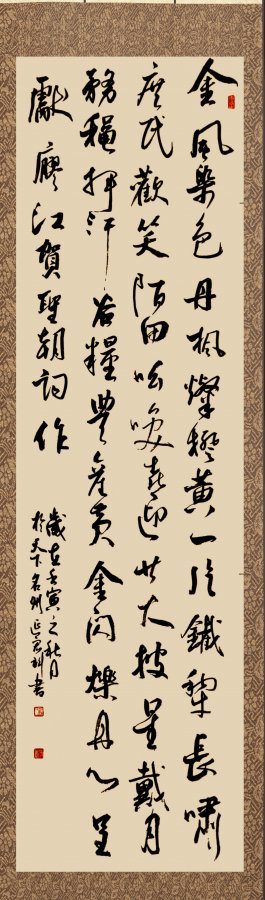 金風染色丹楓燦橙黃一片鐵犁長嘯
庶民歡笑陌田吆喚喜迎廿大披星戴月
務穡揮汗谷糧豐產黃金閃爍丹心呈
獻廖江賀聖朝詞作
歲在壬寅之秋月
於天下名州書